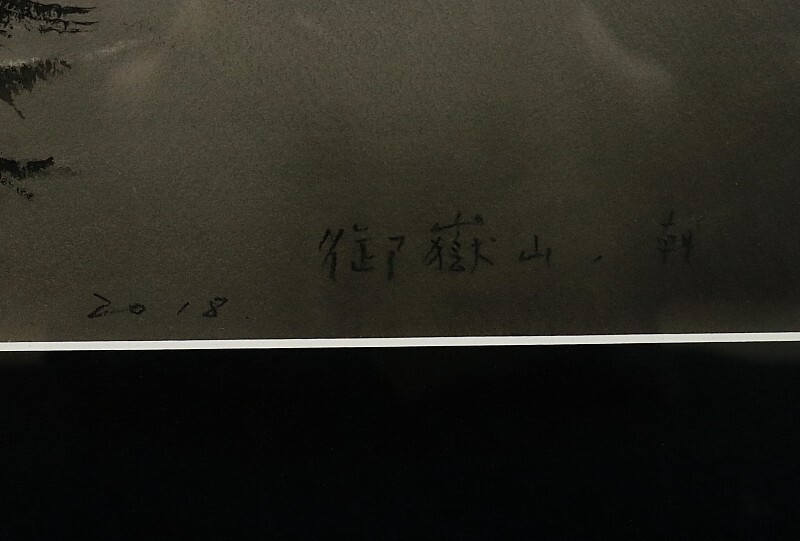 御嶽山、朝
2018.